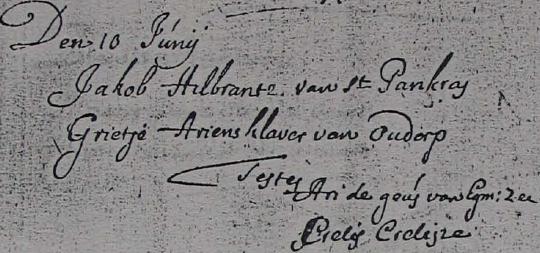 Den 10 Junij
Jakob Hilbrantz. van St Pankras
Grietje Ariens klaver van Oudorp
Testes
Ari de goús van Egm: Zee